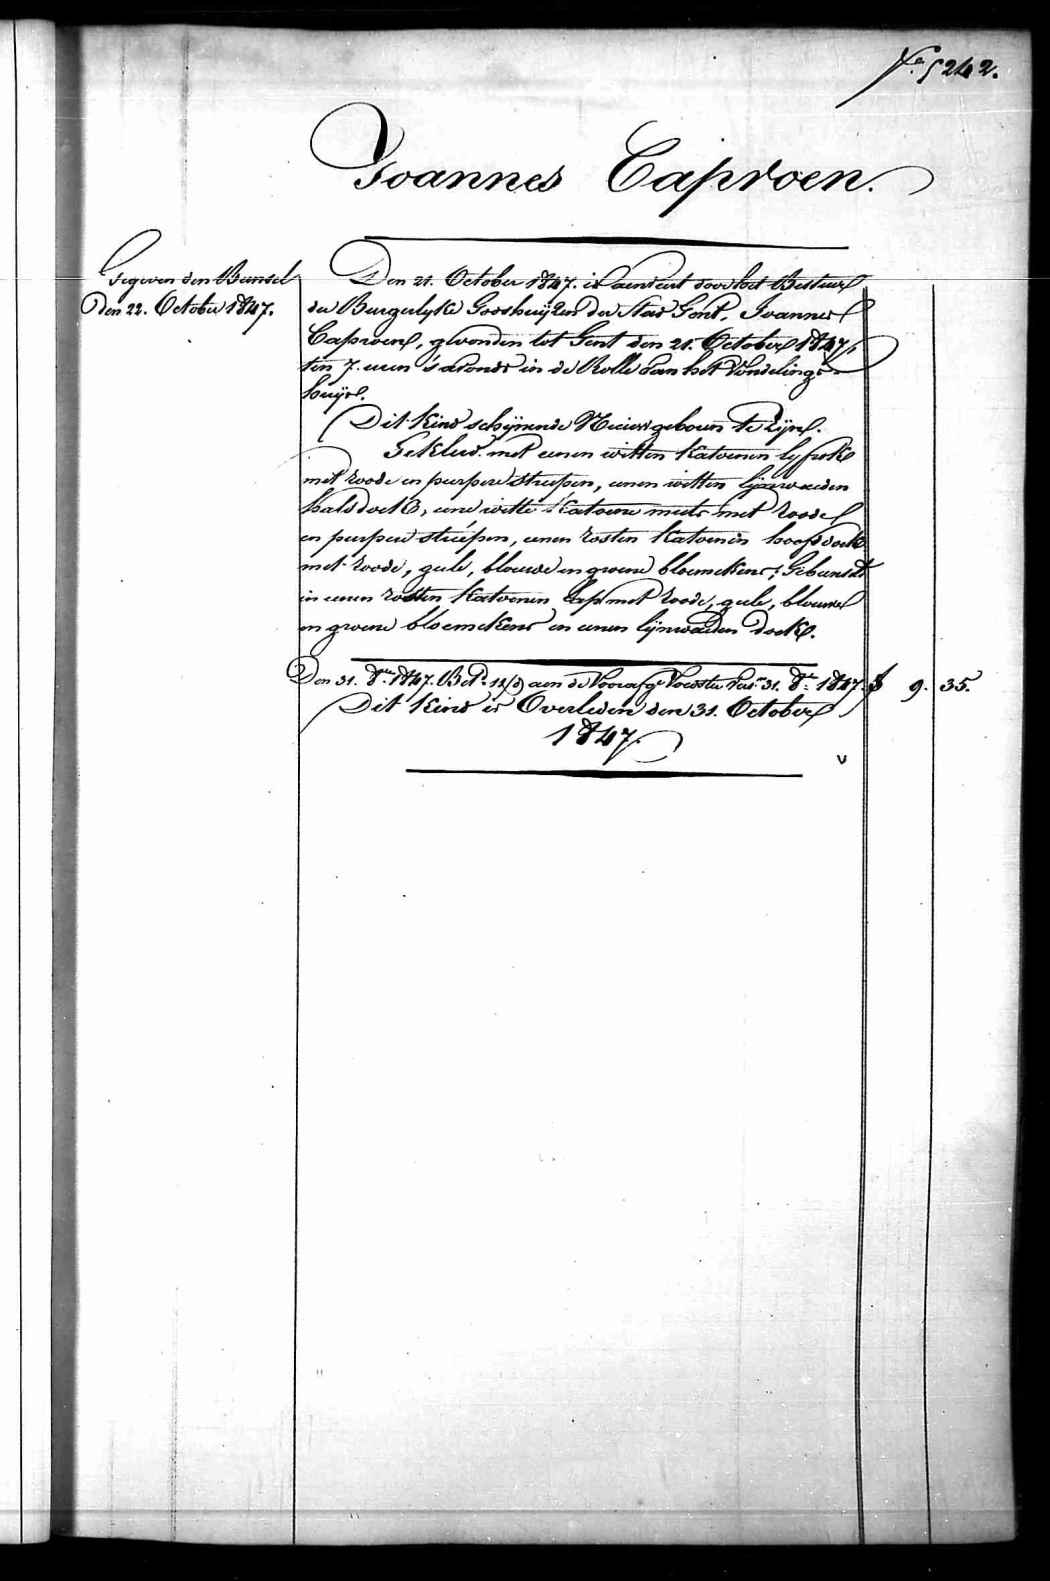 N.º 5242.
Joannes Caproen.
Gegeven den Bunsel
Den 22. October 1847.
Den 21. October 1847. is aenveird door het Bestuur
der Burgerlyke Godshuijzen der Stad Gent, Joannes
Caproen, gevonden tot Gent den 21. October 1847,
ten 7. uren 's avonds in de Rolle van het Vondelings-
huijs.
Dit kind schijnende Nieuwgeboren te zijn.
Gekleed met eenen witten katoenen lyfrok
met roode en purpere streepen, eenen witten lijnwaeden
halsdoek, eene witte katoene muts met roode
en purpere streépen, eenen rosten katoenen hoofddoek
met roode, geele, blauwe en groene bloemekens; Gebunseld
in eenen rosten katoenen lap met roode, geele, blauwe
en groene bloemekens en eenen lijnwaeden doek.
Den 31. 8.re 1847. Bet.d aen de Voorafg.e Voedster 31. 8.re 1847. f 9. 35.
Dit kind is Overleden den 31. October
1847.
v